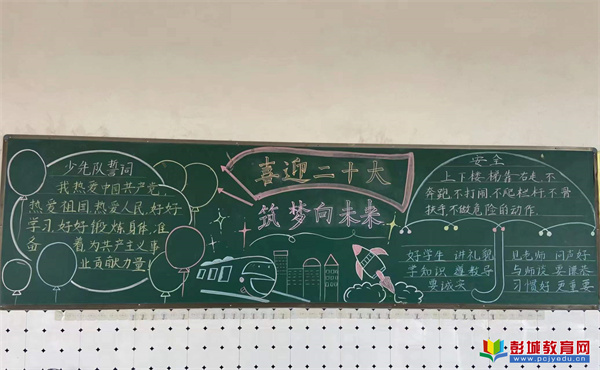 少先队誓词
我热爱中国共产党,
热爱祖国,热爱人民,好好
学习,好好锻炼身体,准
备着,为共产主义事
业贡献力量!
喜迎二十大
筑梦向未来
安全
上下楼梯靠右走,不
奔跑,不打闹,不爬栏杆,不滑
扶手,不做危险的动作.
好学生 讲礼貌
学知识 懂教导
要诚实
见老师 问声好
与师谈 要谦恭
习惯好 更重要
彭城教育网
www.pcjyedu.cn